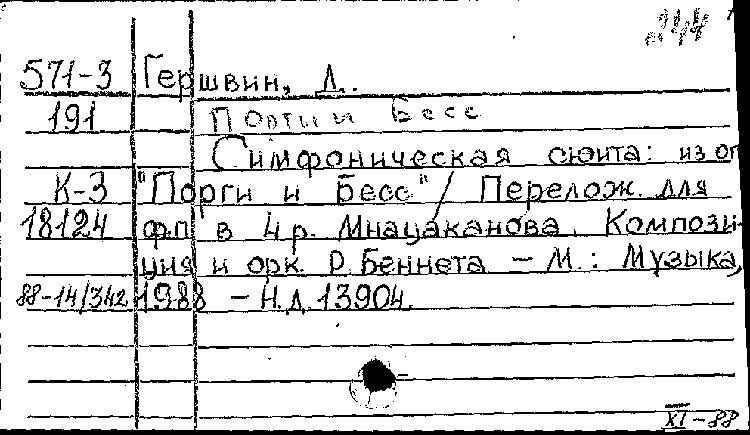 244
571-3 Гершвин, Д.
191 Порги и Бесс
Симфоническая сюита: из оп
К-3 "Порги и Бесс" / Перелож. для
18124 ф.п. в 4 р. Мнацаканова. Компози-
ция и орк. Р. Беннета – М.: Музыка,
88-14/342 1988 – Н.Д. 13904.
XI-88